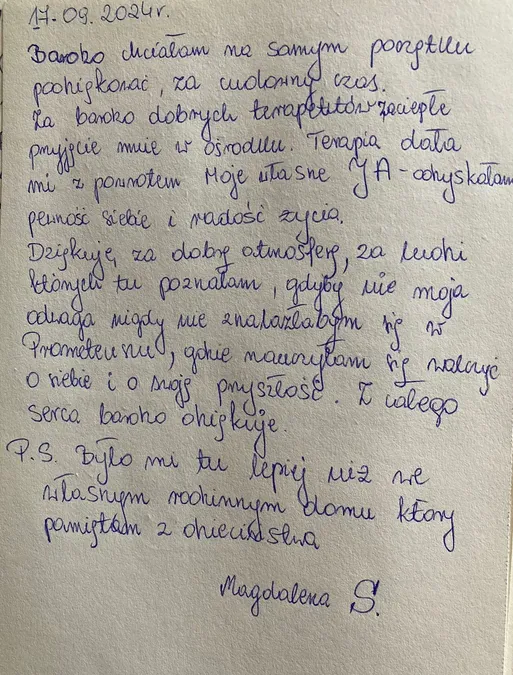 17.09.2024r.
Bardzo chciałam na samym początku
podziękować, za cudowny czas.
Za bardzo dobrych terapeutów za ciepłe
przyjęcie mnie w ośrodku. Terapia dała
mi z powrotem Moje własne JA - odzyskałam
pewność siebie i radość życia.
Dziękuję, za dobrą atmosferę, za ludzi
których tu poznałam, gdyby nie moja
odwaga nigdy nie znalazłabym się w
Prometeuszu, gdzie nauczyłam się walczyć
o siebie i o moją przyszłość. Z całego
serca bardzo dziękuje.
P.S. Było mi tu lepiej niż we
własnym rodzinnym domu który
pamiętam z dzieciństwa
Magdalena S.